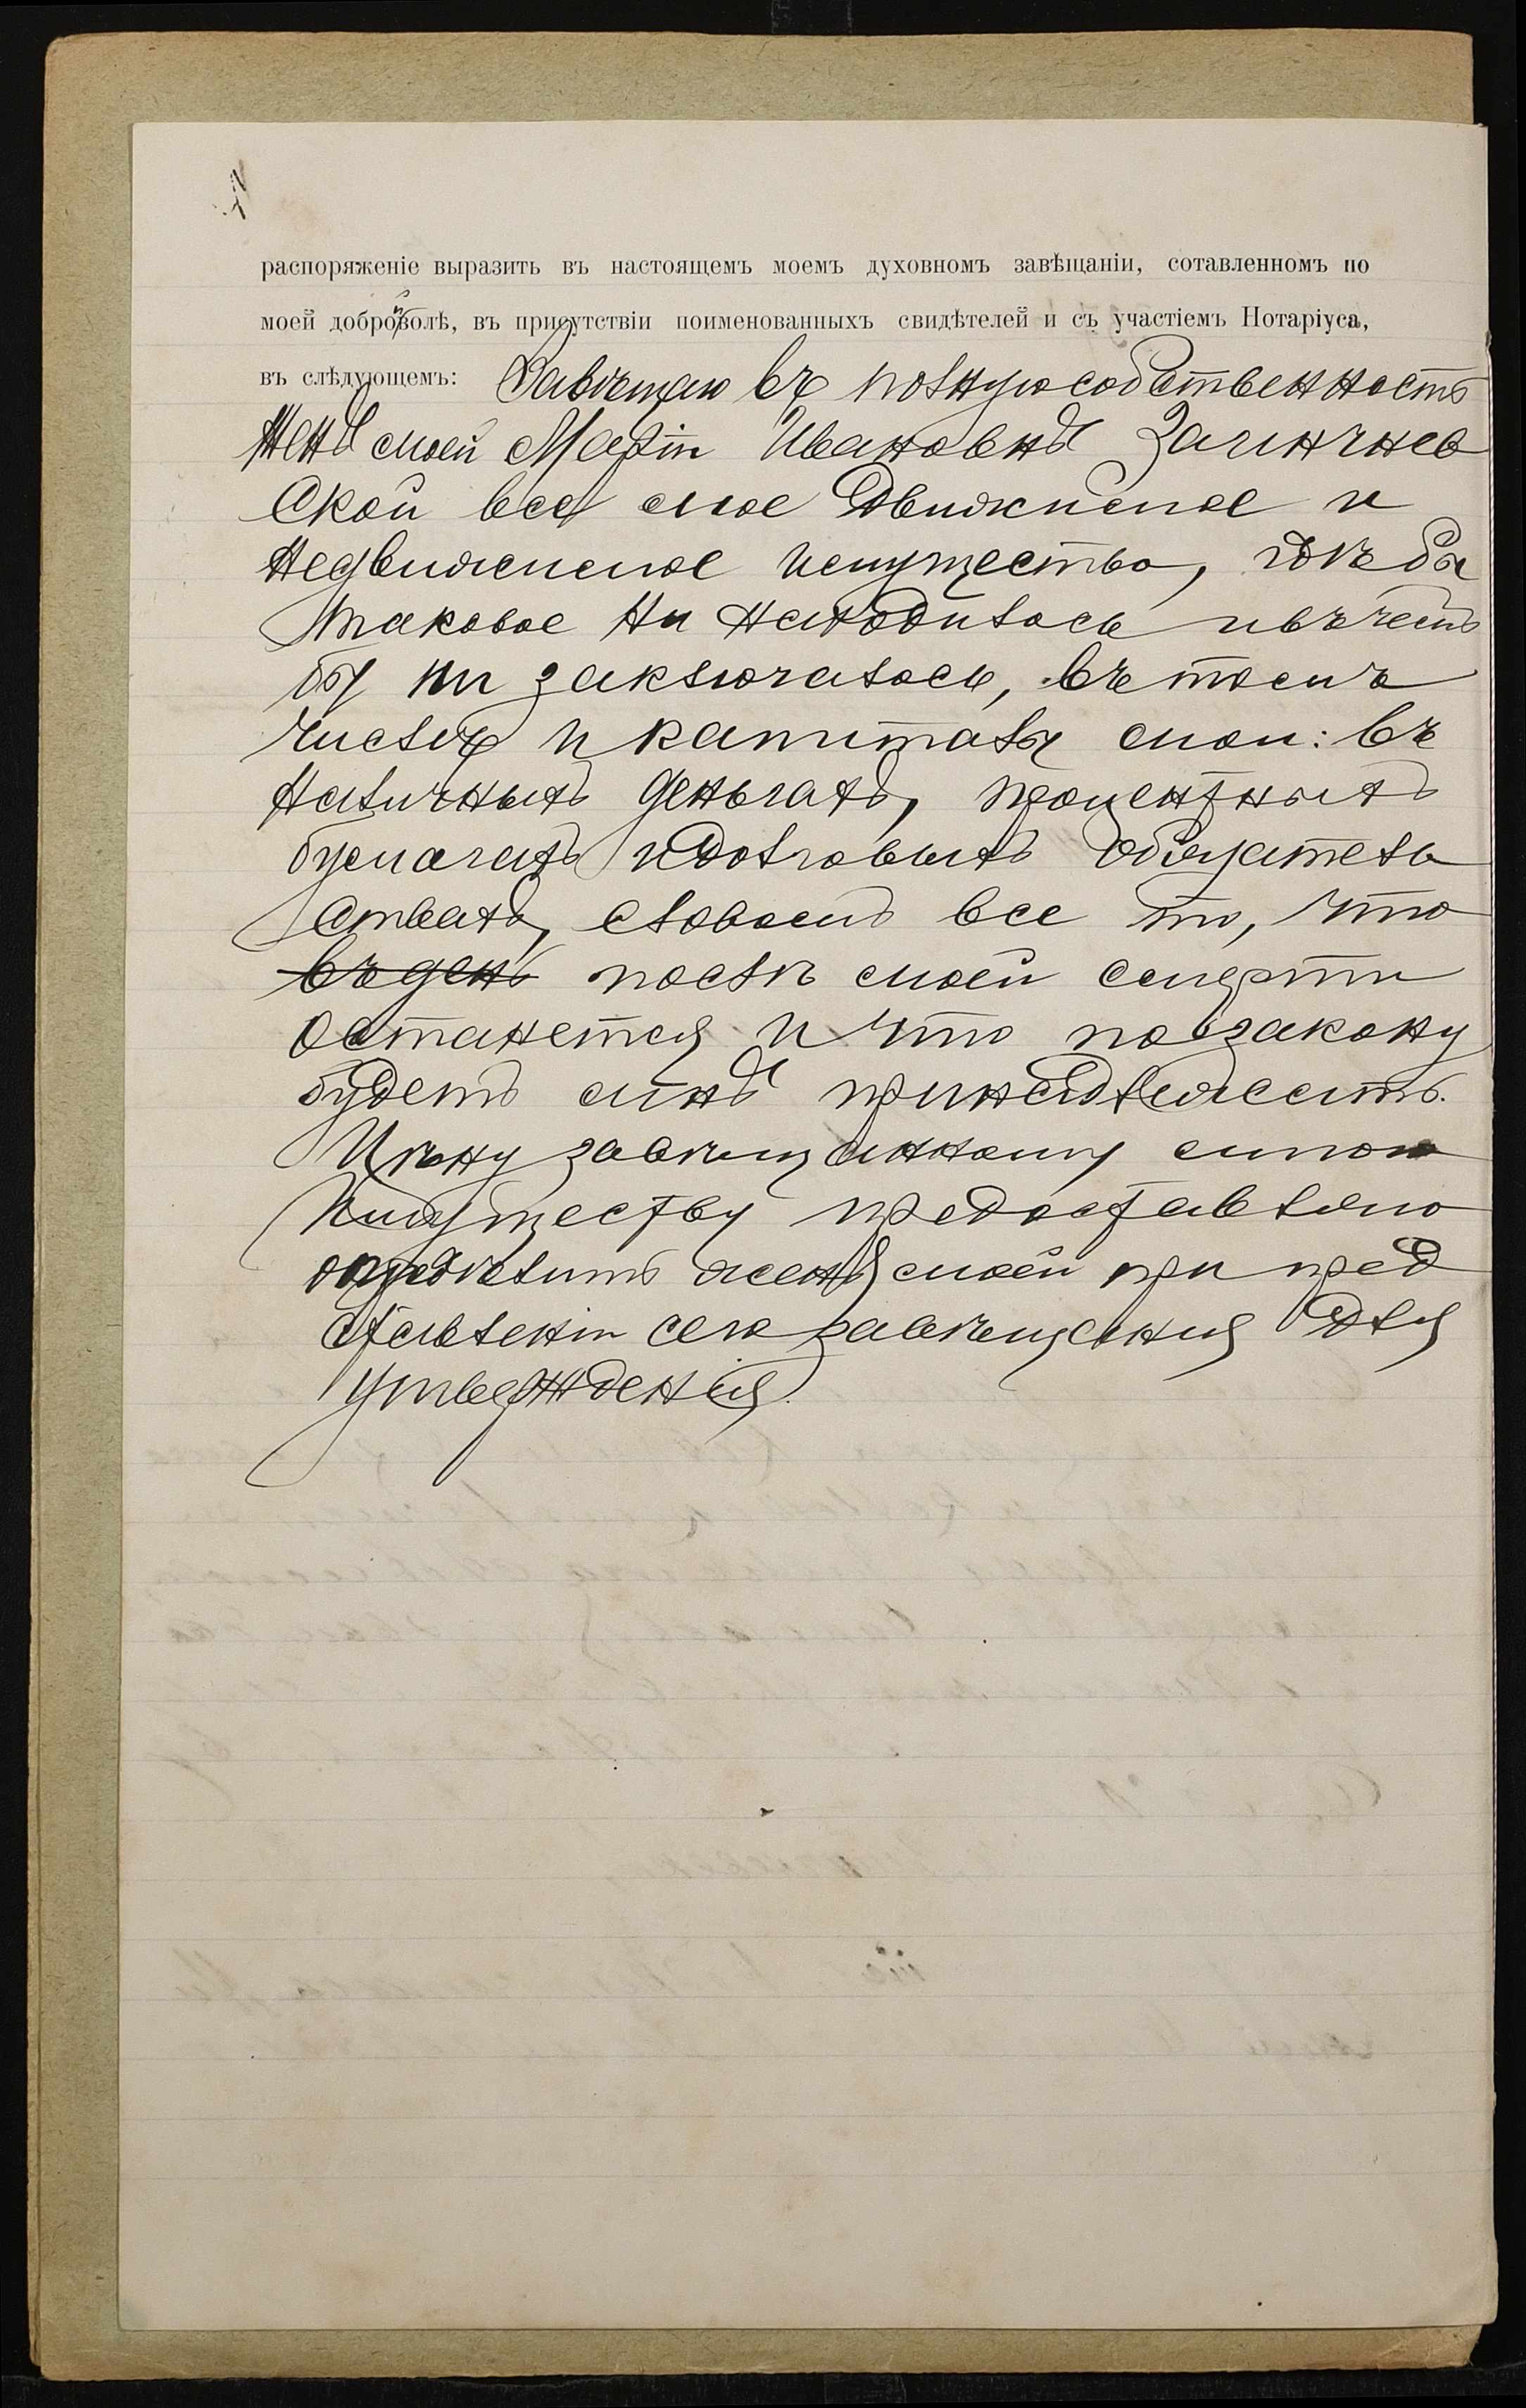 распоряженіе выразить въ настоящемъ моемъ духовномъ завѣщаніи, сотавленномъ по
моей доброй волѣ, въ присутствіи поименованныхъ свидѣтелей и съ участіемъ Нотаріуса,
въ слѣдующемъ: Завѣщаю въ полную собственность
женѣ моей Маріи Ивановнѣ
ской все мое движимое и
недвижимое имущество, гдѣ бы
таковое ни находилось и въ чемъ
бы ни заключалось, въ томъ
числѣ и капиталы мои: въ
наличныхъ деньгахъ, процентныхъ
бумагахъ и долговыхъ обязатель
ствахъ, словомъ все то, что
въ день послѣ моей смерти
останется и что по закону
будетъ мнѣ принадлежать.
Цѣну завѣщанному мною
имуществу предоставляю
опредѣлить женѣ моей при пред
ставленіи сего завѣщанія для
утвержденія.